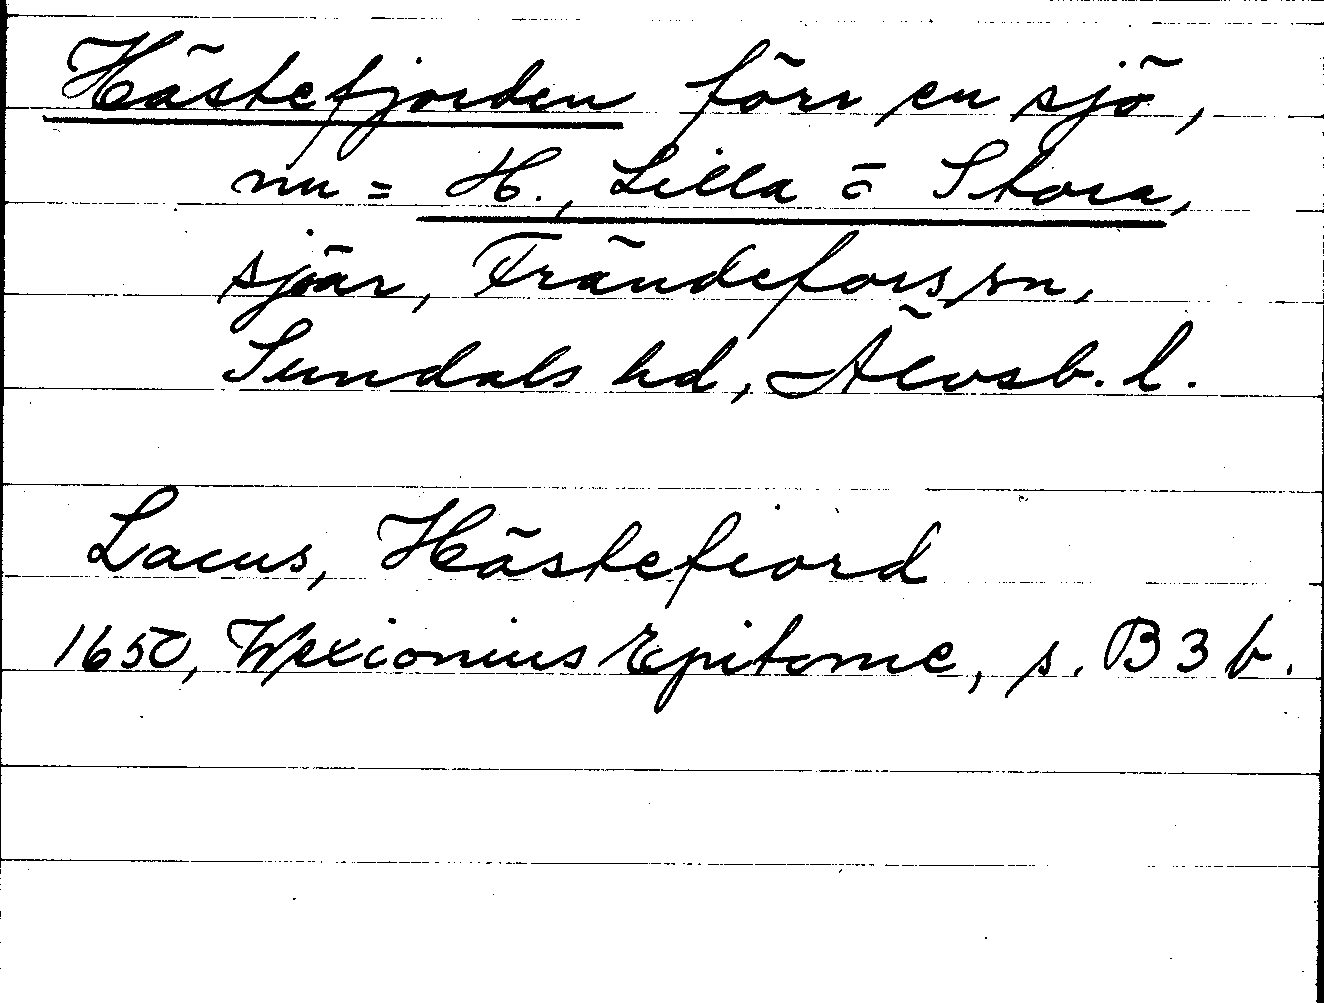 Hästefjorden förr en sjö,
nu = H., Lilla o Stora,
sjöar, Frändefors sn,
Sundals hd, Älvsb. l.
Lacus, Hästefiord
1650, Wexionius Epitome, s. B 3 b.